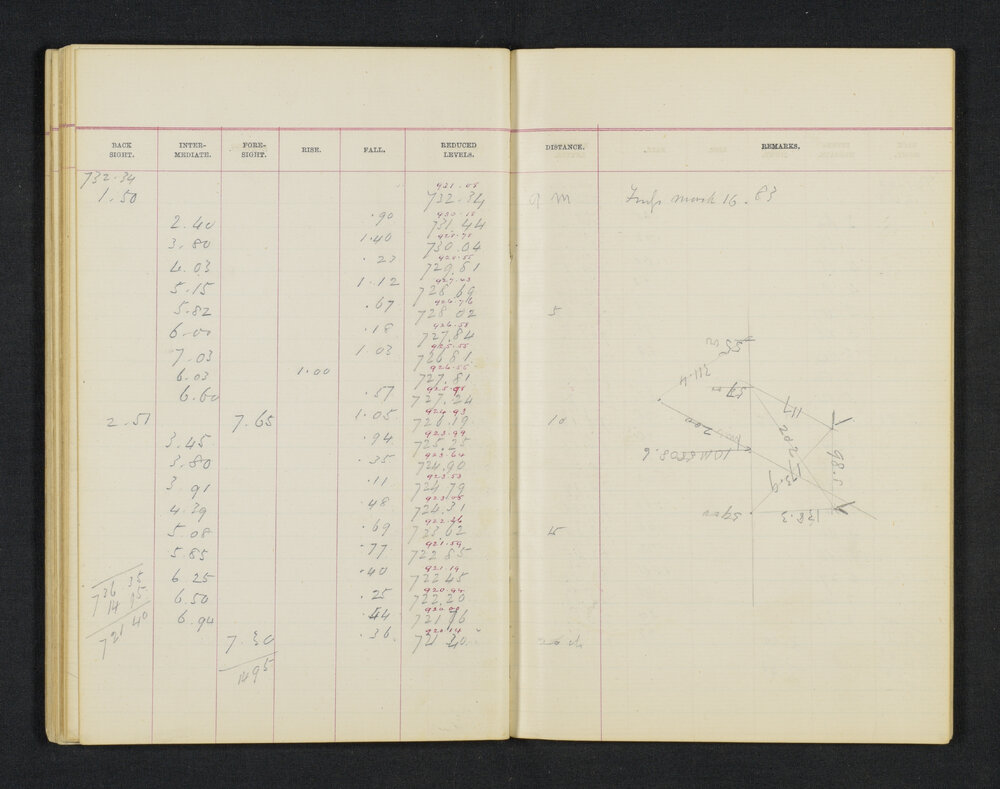 BACK SIGHT. INTER- MEDIATE. FORE- SIGHT. RISE. FALL. REDUCED LEVELS. DISTANCE. REMARKS.
732.34 931.05
1.50 732.34 9 m mark 16.83
930.15
2.40 .90 731.44
928.75
3.80 1.40 730.04
928.55
4.03 .23 729.81
927.43
5.15 1.12 728.69
926.76
5.82 .67 728.02 5
926.58
6.00 .18 727.84
925.55
7.03 1.03 726.81
926.55
6.03 1.00 727.81
925.98
6.60 .57 727.24
924.93
2.51 7.65 1.05 726.19 10
923.99
3.45 .94 725.25
923.64
3.80 .35 724.90
923.53
3.91 .11 724.79
923.05
4.39 .48 724.31
922.36
5.08 .69 723.62 15
921.59
5.85 .77 722.85
921.19
6.25 .40 722.45
920.94
6.50 .25 722.20
6.94 .44 721.76
7.30 .36 721.40
1495
736.35
14.95
721.40
311.4
117
202
200
98.5
138.3